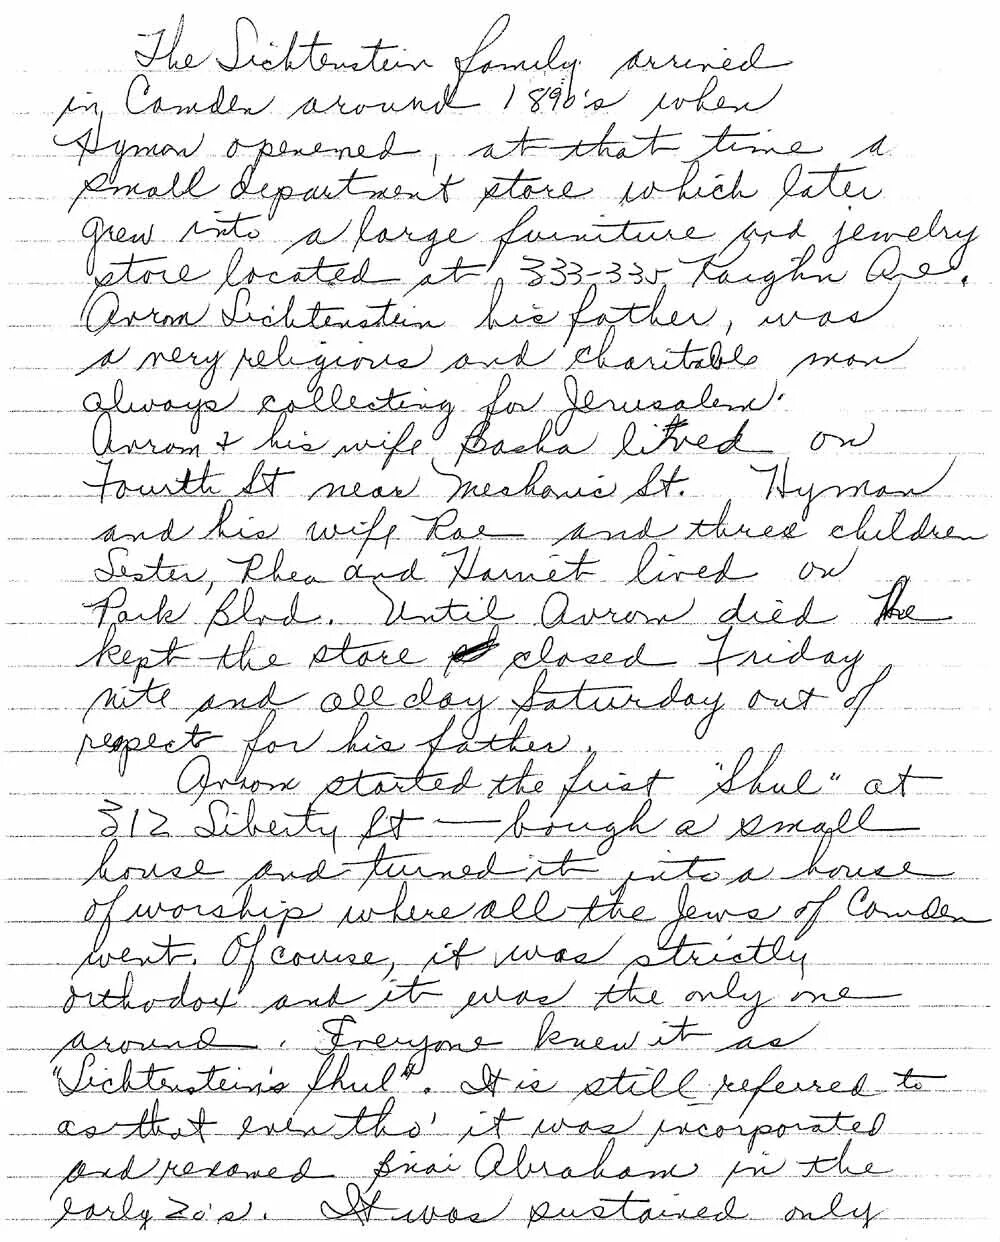 The Lichtenstein family arrived
in Camden around 1890's when
Hyman openened, at that time a
small department store which later
grew into a large furniture and jewelry
store located at 333-335 Kaighn Ave.
Avrom Lichtenstein his father, was
a very religious and charitable man
always collecting for Jerusalem.
Avrom & his wife Basha lived on
Fourth St near Mechanic St. Hyman
and his wife Rae and three children
Lester, Rhea and Harriet lived on
Park Blvd. Until Avrom died he
kept the store closed Friday
nite and all day Saturday out of
respect for his father.
Avrom started the first "Shul" at
312 Liberty St — bough a small
house and turned it into a house
of worship where all the Jews of Camden
went. Of course, it was strictly
orthodox and it was the only one
around. Everyone knew it as
"Lichtenstein's Shul". It is still referred to
as that even tho' it was incorporated
and renamed B'nai Abraham in the
early 20's. It was sustained only